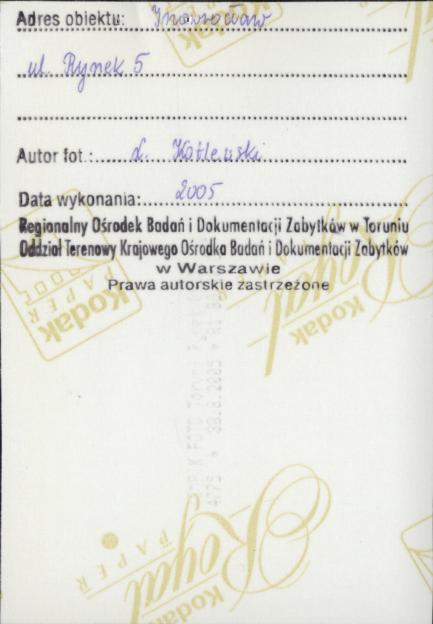 Adres obiektu: Inowrocław
ul. Rynek 5
Autor fot.: L. Kotlewski
Data wykonania: 2005
Regionalny Ośrodek Badań i Dokumentacji Zabytków w Toruniu
Oddział Terenowy Krajowego Ośrodka Badań i Dokumentacji Zabytków
w Warszawie
Prawa autorskie zastrzeżone
Kodak
PAPER
Kodak
Royal
FOTO Toruń
4775 * 30.8.2005
Kodak
Royal
PAPER